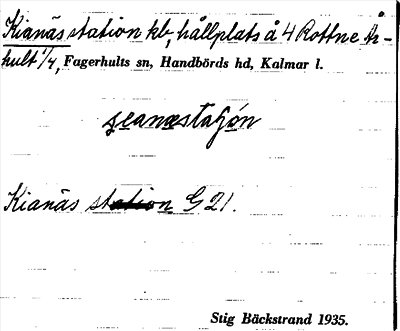 Kianäs station kb, hållplats å 4 Rottne Är-
hult 1/4, Fagerhults sn, Handbörds hd, Kalmar l.
Kianäs station G 21.
Stig Bäckstrand 1935.